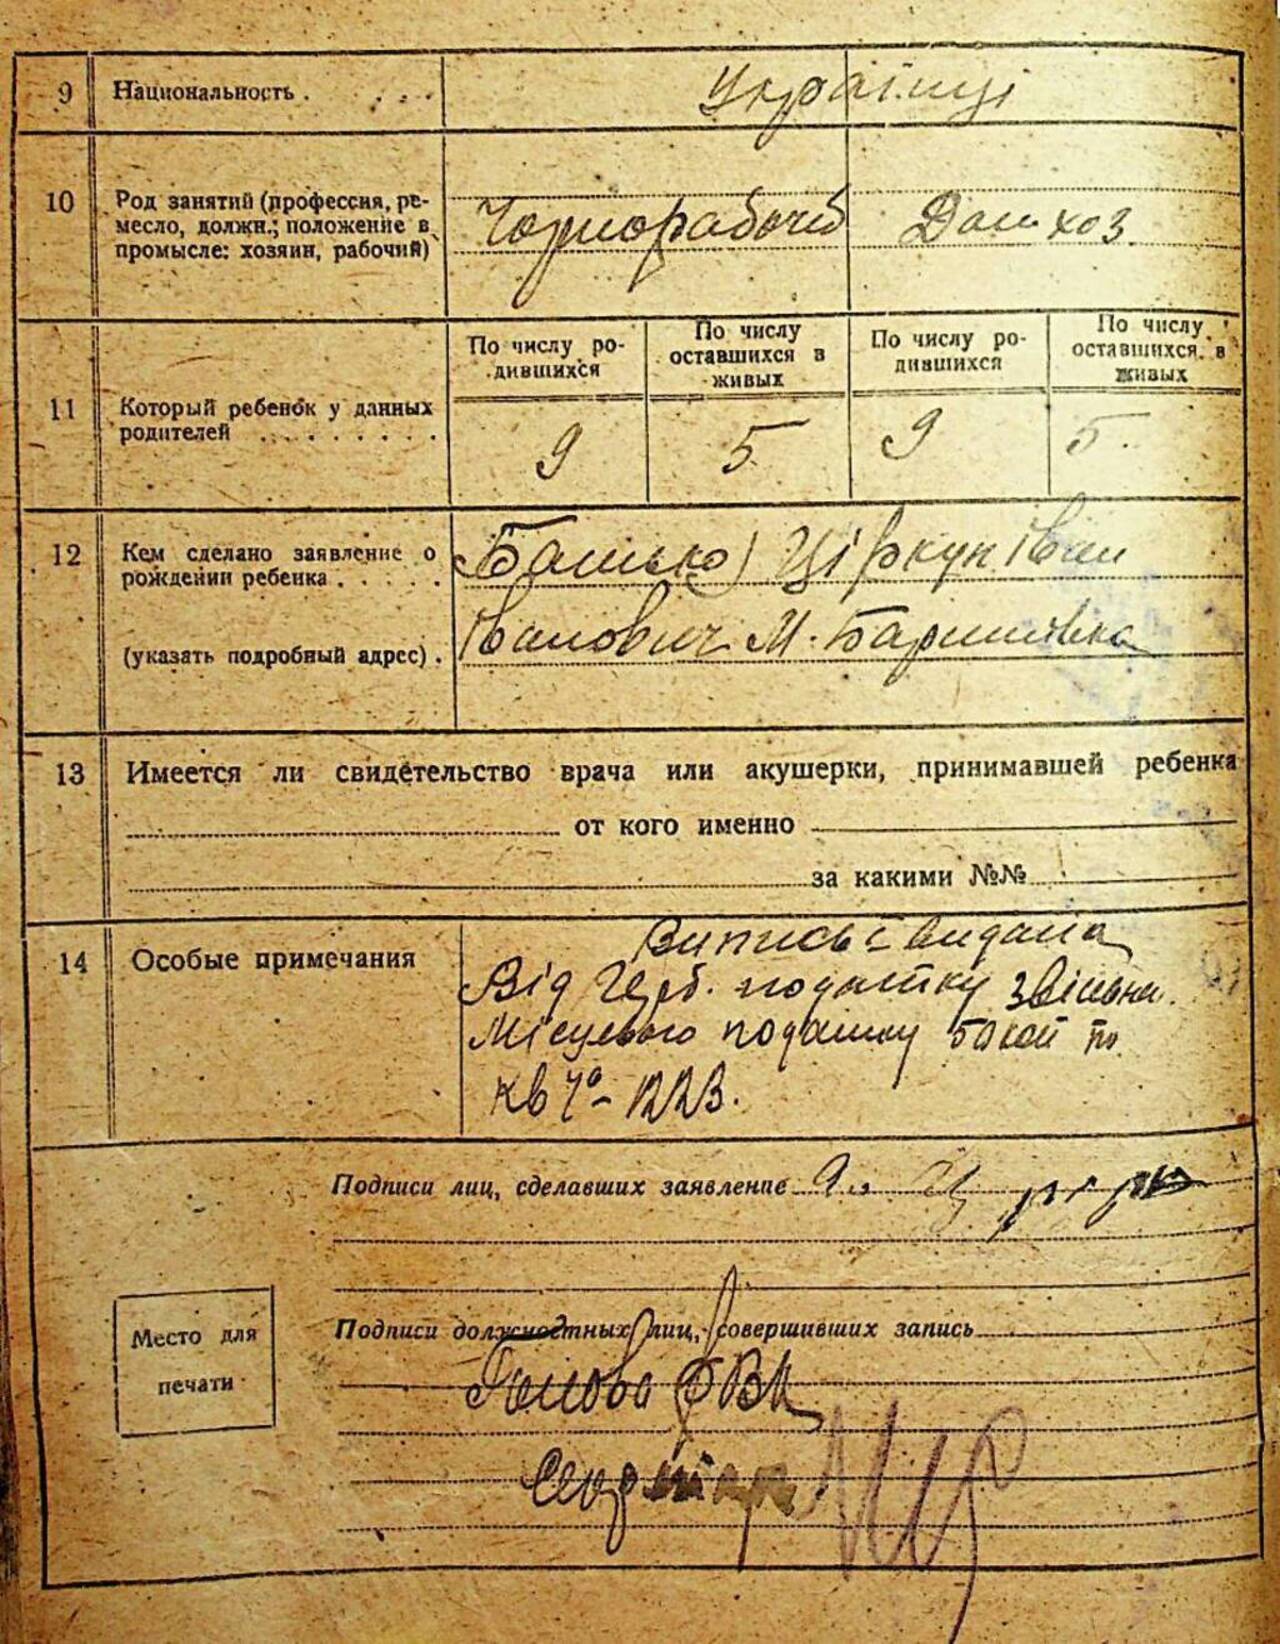 9 Национальность . . . . Українці
10 Род занятий (профессия, ре-
месло, должн.; положение в
промысле: хозяин, рабочий)
Чорнорабочий Дом хоз.
По числу ро-
дившихся
По числу
оставшихся в
живых
По числу ро-
дившихся
По числу
оставшихся в
живых
11 Который ребенок у данных
родителей . . . . . . . . .
9 5 9 5.
12 Кем сделано заявление о
рождении ребенка . . . . .
(указать подробный адрес) .
Батько Ціркун Іван
Іванович М. Баришівка
13 Имеется ли свидетельство врача или акушерки, принимавшей ребенка
от кого именно
за какими №№
14 Особые примечания
Випись видана
Від Герб. податку звільнен.
Місцевого податку 50 коп по
кв № 1223.
Подписи лиц, сделавших заявление
Подписи должностных лиц, совершивших запись
Голова
Секретар
Место для
печати